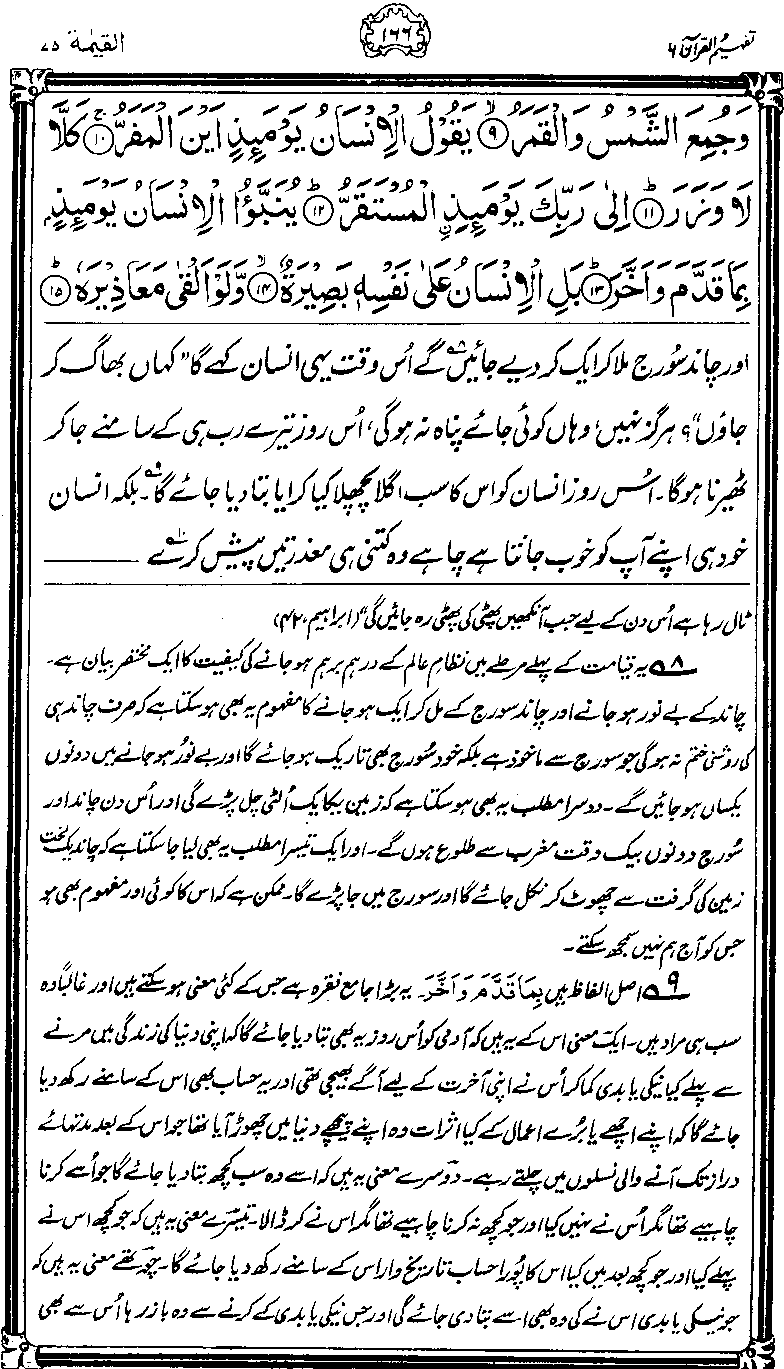 تفہیم القرآن ۶
۱۶۶
القیٰمۃ ۷۵
وَجُمِعَ الشَّمْسُ وَالْقَمَرُ ﴿۹﴾ يَقُوْلُ الْاِنْسَانُ يَوْمَىِٕذٍ اَيْنَ الْمَفَرُّ ﴿۱۰﴾ كَلَّا
لَا وَزَرَ ﴿۱۱﴾ اِلٰى رَبِّكَ يَوْمَىِٕذِ اِ۟لْمُسْتَقَرُّ ﴿۱۲﴾ يُنَبَّؤُا الْاِنْسَانُ يَوْمَىِٕذٍۭ
بِمَا قَدَّمَ وَاَخَّرَ ﴿۱۳﴾ بَلِ الْاِنْسَانُ عَلٰى نَفْسِهٖ بَصِيْرَةٌ ﴿۱۴﴾ وَّلَوْ اَلْقٰى مَعَاذِيْرَهٗ ﴿۱۵﴾
اور چاند سُورج ملا کر ایک کر دیے جائیں گے ۸ اُس وقت یہی انسان کہے گا ”کہاں بھاگ کر
جاؤں“؟ ہرگز نہیں، وہاں کوئی جائے پناہ نہ ہوگی، اُس روز تیرے رب ہی کے سامنے جا کر
ٹھیرنا ہوگا۔ اُس روز انسان کو اس کا سب اگلا پچھلا کیا کرایا بتا دیا جائے گا ۹۔ بلکہ انسان
خود ہی اپنے آپ کو خوب جانتا ہے چاہے وہ کتنی ہی معذرتیں پیش کرے ۱۰
ٹال رہا ہے اُس دن کے لیے جب آنکھیں پھٹی کی پھٹی رہ جائیں گی“ (ابراہیم، ۴۲)
۸ یہ قیامت کے پہلے مرحلے میں نظامِ عالم کے درہم برہم ہو جانے کی کیفیت کا ایک مختصر بیان ہے۔
چاند کے بے نور ہو جانے اور چاند سورج کے مل کر ایک ہو جانے کا مفہوم یہ بھی ہو سکتا ہے کہ صرف چاند ہی
کی روشنی ختم نہ ہوگی جو سورج سے ماخوذ ہے بلکہ خود سُورج بھی تاریک ہو جائے گا اور بے نور ہو جانے میں دونوں
یکساں ہو جائیں گے۔ دوسرا مطلب یہ بھی ہو سکتا ہے کہ زمین یکایک اُلٹی چل پڑے گی اور اُس دن چاند اور
سُورج دونوں بیک وقت مغرب سے طلوع ہوں گے۔ اور ایک تیسرا مطلب یہ بھی لیا جا سکتا ہے کہ چاند یک لخت
زمین کی گرفت سے چھوٹ کر نکل جائے گا اور سورج میں جا پڑے گا۔ ممکن ہے کہ اس کا کوئی اور مفہوم بھی ہو
جس کو آج ہم نہیں سمجھ سکتے۔
۹ اصل الفاظ ہیں بِمَا قَدَّمَ وَاَخَّرَ۔ یہ بڑا جامع فقرہ ہے جس کے کئی معنی ہو سکتے ہیں اور غالباً وہ
سب ہی مراد ہیں۔ ایک معنی اس کے یہ ہیں کہ آدمی کو اُس روز یہ بھی بتا دیا جائے گا کہ اپنی دنیا کی زندگی میں مرنے
سے پہلے کیا نیکی یا بدی کما کر اُس نے اپنی آخرت کے لیے آگے بھیجی تھی اور یہ حساب بھی اس کے سامنے رکھ دیا
جائے گا کہ اپنے اچھے یا بُرے اعمال کے کیا اثرات وہ اپنے پیچھے دنیا میں چھوڑ آیا تھا جو اس کے بعد مدتہائے
دراز تک آنے والی نسلوں میں چلتے رہے۔ دوسرے معنی یہ ہیں کہ اسے وہ سب کچھ بتا دیا جائے گا جو اُسے کرنا
چاہیے تھا مگر اُس نے نہیں کیا اور جو کچھ نہ کرنا چاہیے تھا مگر اس نے کر ڈالا۔ تیسرے معنی یہ ہیں کہ جو کچھ اس نے
پہلے کیا اور جو کچھ بعد میں کیا اس کا پُورا حساب تاریخ وار اس کے سامنے رکھ دیا جائے گا۔ چوتھے معنی یہ ہیں کہ
جو نیکی یا بدی اس نے کی وہ بھی اسے بتا دی جائے گی اور جس نیکی یا بدی کے کرنے سے وہ باز رہا اُس سے بھی